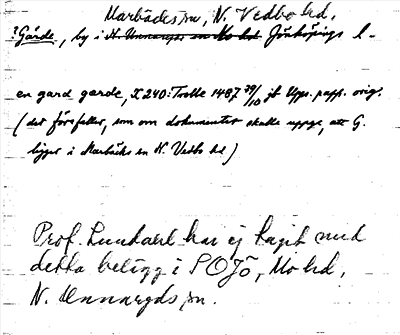 Marbäcks sn, N. Vedbo hd,
? Gårde, by i N. Unnaryds sn Mo hd Jönköpings l.
en gard garde, X 240: Trolle 1487 29/10 jb Upps. papp. orig.
(det förefaller, som om dokumentet skulle uppge, att G.
ligger i Marbäcks sn N. Vedbo hd)
Prof. Lundahl har ej tagit med
detta belägg i SOJö, Mo hd,
N. Unnaryds sn.